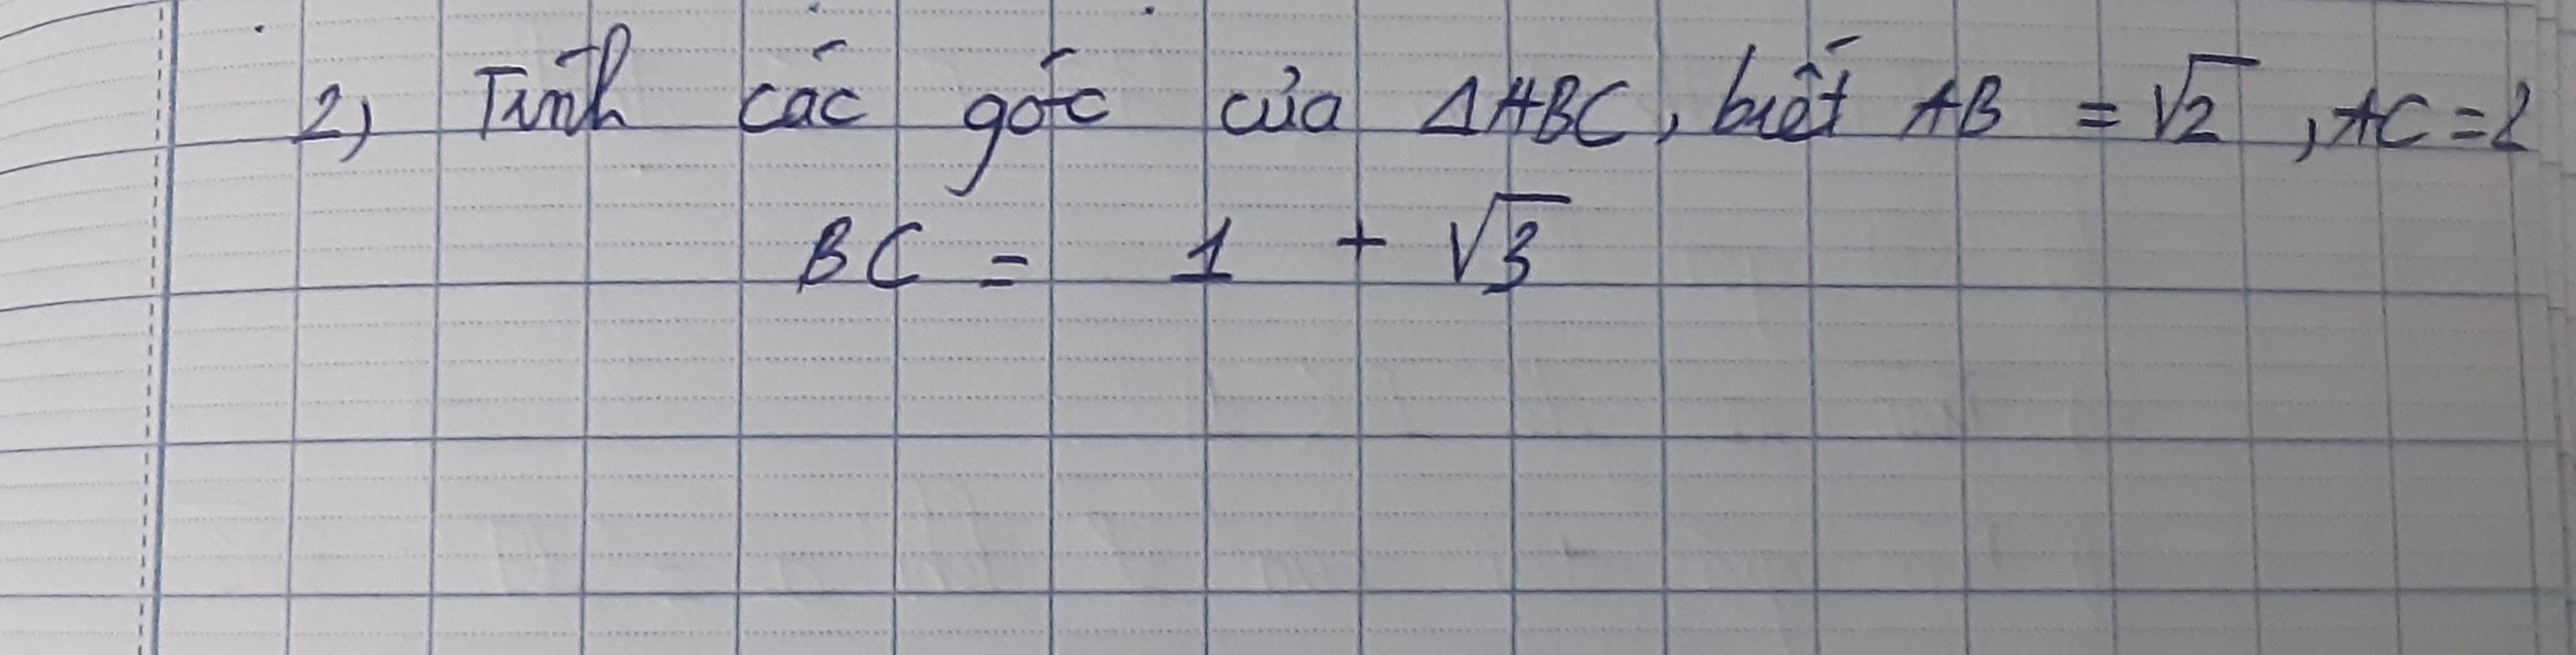 2, Tính các góc của ΔABC, biết AB = √2, AC = 2
BC = 1 + √3